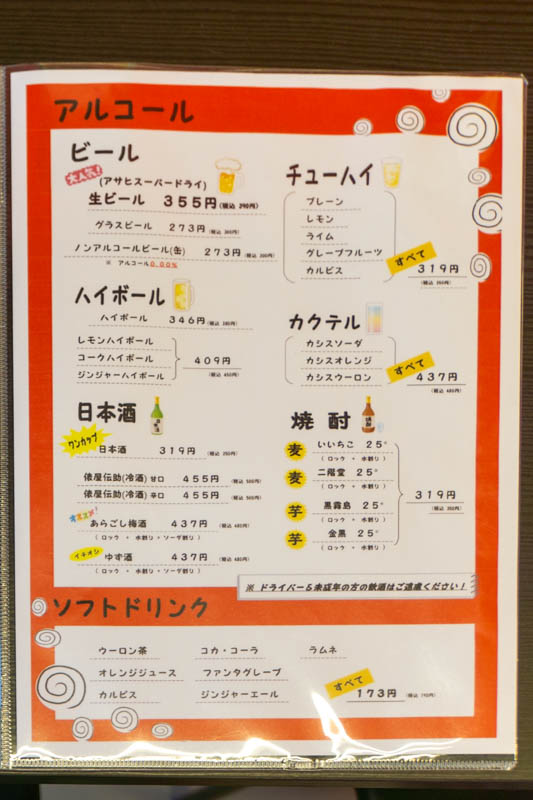 アルコール
ビール
大人気!
(アサヒスーパードライ)
生ビール 355円(税込 390円)
グラスビール 273円(税込 300円)
ノンアルコールビール(缶) 273円(税込 300円)
※ アルコール0.00%
ハイボール
ハイボール 346円(税込 380円)
レモンハイボール
コークハイボール
ジンジャーハイボール
409円
(税込 450円)
日本酒
ワンカップ
日本酒 319円(税込 350円)
俵屋伝助(冷酒)甘口 455円(税込 500円)
俵屋伝助(冷酒)辛口 455円(税込 500円)
オススメ!
あらごし梅酒 437円(税込 480円)
(ロック ・ 水割り・ソーダ割り)
イチオシ
ゆず酒 437円(税込 480円)
(ロック ・ 水割り・ソーダ割り)
チューハイ
プレーン
レモン
ライム
グレープフルーツ
カルピス
すべて
319円
(税込 350円)
カクテル
カシスソーダ
カシスオレンジ
カシスウーロン
すべて
437円
(税込 480円)
焼酎
麦 いいちこ 25°
(ロック ・ 水割り)
麦 二階堂 25°
(ロック ・ 水割り)
芋 黒霧島 25°
(ロック ・ 水割り)
芋 金黒 25°
(ロック ・ 水割り)
319円
(税込 350円)
※ ドライバー&未成年の方の飲酒はご遠慮ください!
ソフトドリンク
ウーロン茶 コカ・コーラ ラムネ
オレンジジュース ファンタグレープ
カルピス ジンジャーエール
すべて
173円 (税込 190円)